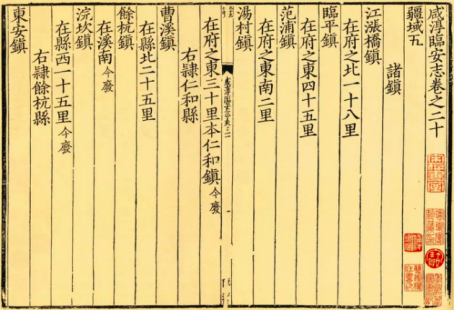 咸淳臨安志卷之二十
疆域五
諸鎮
江漲橋鎮
在府之北一十八里
臨平鎮
在府之東四十五里
范浦鎮
在府之東南二里
湯村鎮
在府之東三十里本仁和鎮今廢
右隷仁和縣
曹溪鎮
在縣北二十五里
餘杭鎮
在溪南今廢
浣坎鎮
在縣西一十五里今廢
右隷餘杭縣
東安鎮